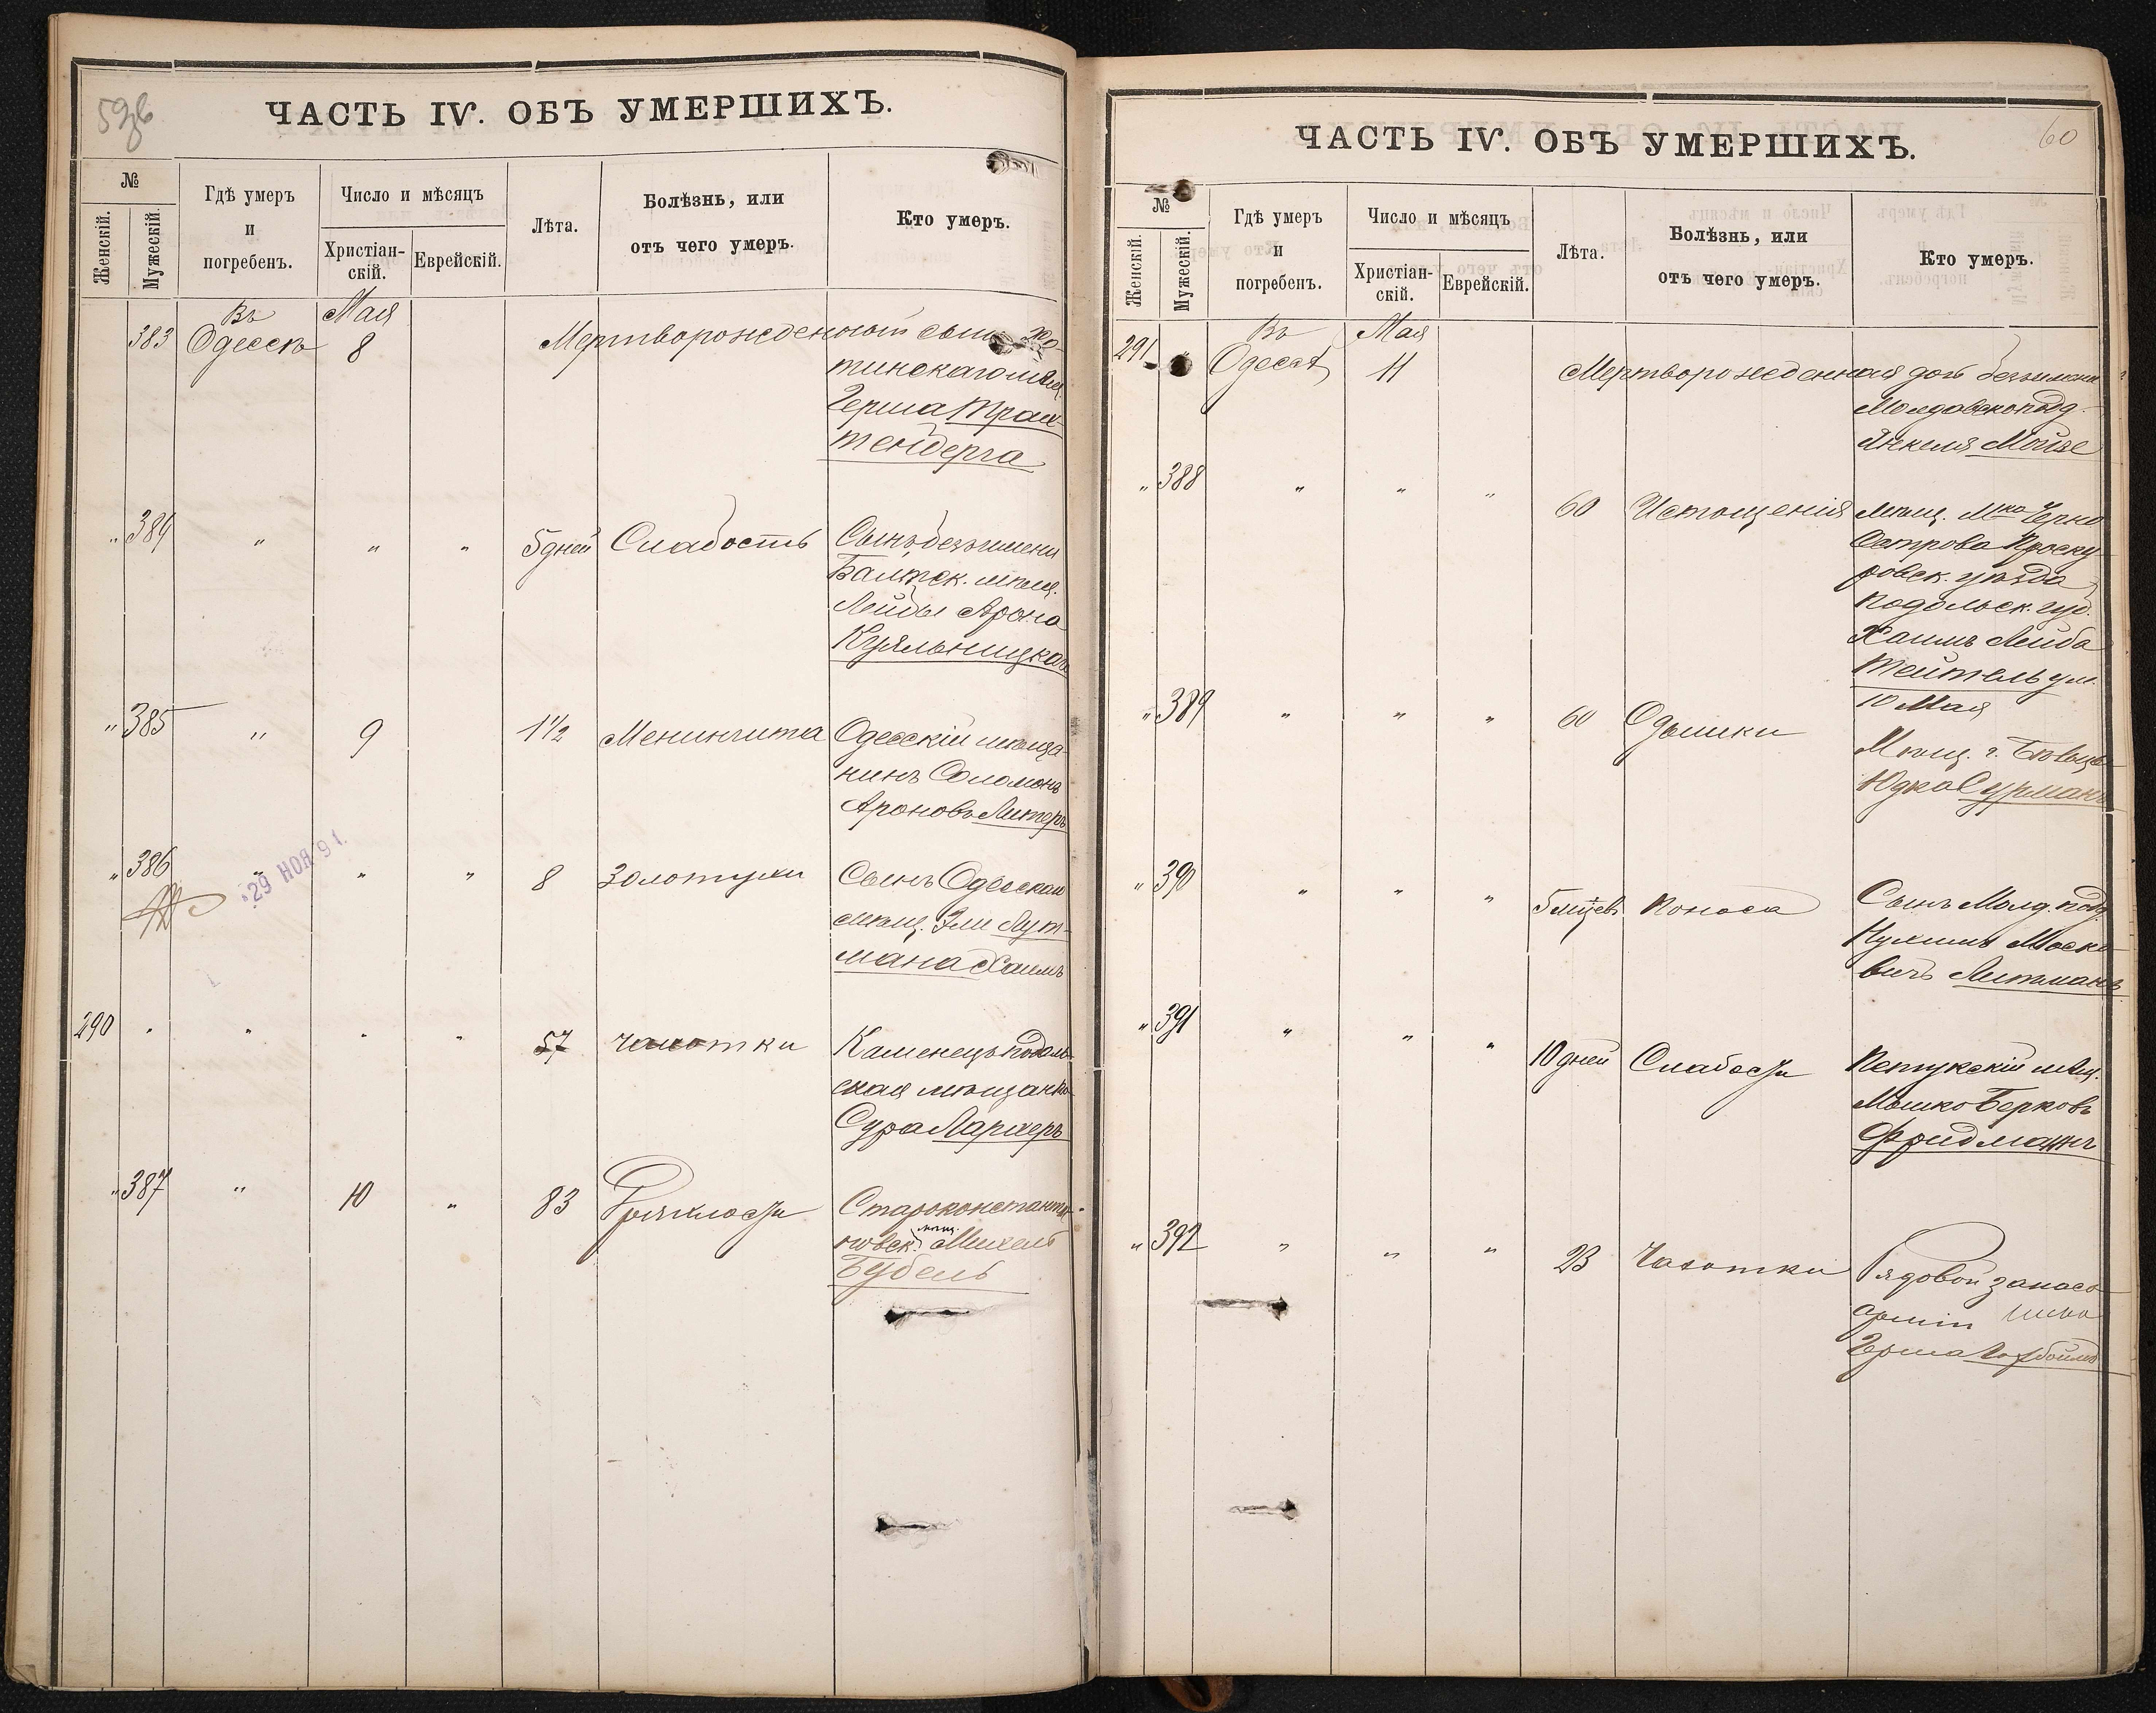 59об
ЧАСТЬ IV. ОБЪ УМЕРШИХЪ.
№
Женскій.
Мужескій.
Гдѣ умеръ
и
погребенъ.
Число и мѣсяцъ
Христіан-
скій.
Еврейскій.
Лѣта.
Болѣзнь, или
отъ чего умеръ.
Кто умеръ.
383 Въ Одессѣ Мая 8 Мертворожденный сынъ Хо-
тинскаго мѣщ.
Герша Трах-
тенберга
" 384 " " " 5 дней Слабость Сынъ безъ имени
Балтск. мѣщ.
Лейбы Арона
Куяльницкаго
" 385 " 9 1½ Менингита Одесскій мѣща-
нинъ Соломонъ
Ароновъ Литеръ
" 386 " " " 8 Золотухи Сынъ Одесскаго
мѣщ. Эли Лут-
мана Хаимъ
29 НОЯ 91.
290 " " " " 57 Чахотки Каменецъ подоль-
ская мѣщанка
Сура Лархеръ
" 387 " 10 " 83 Дряхлости Староконстанти-
новск. мѣщ. Михель
Бубель
60
ЧАСТЬ IV. ОБЪ УМЕРШИХЪ.
№
Женскій.
Мужескій.
Гдѣ умеръ
и
погребенъ.
Число и мѣсяцъ
Христіан-
скій.
Еврейскій.
Лѣта.
Болѣзнь, или
отъ чего умеръ.
Кто умеръ.
291 Въ Одессѣ Мая 11 Мертворожденная дочь безъ имени
Молдавскоподд.
Янкеля Мойзе
" 388 " " " 60 Истощенія мѣщ. Мка Черно
Острова Проску-
ровск. уѣзда
Подольск. губ.
Хаимъ Лейба
Тейтель ум.
10 Мая
" 389 " " " 60 Одышки Мѣщ. г. Бѣльцы
Юдко Сурманъ
" 390 " " " 5 мѣсцевъ Поноса Сынъ Молд. подд.
Нухима Моско-
вичъ Литманъ
" 391 " " " 10 дней Слабости мѣщ.
Мошко Берковъ
Фридманъ
" 392 " " " 23 Чахотки Рядовой запаса
арміи
Герша